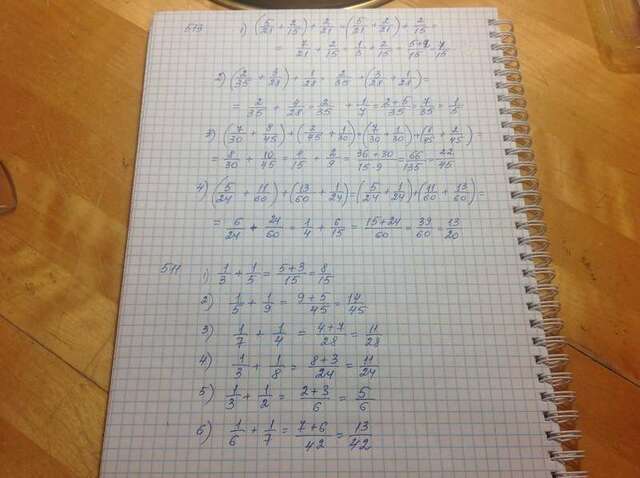 579 1) (5/21 + 2/15) + 2/21 = (5/21 + 2/21) + 2/15 =
= 7/21 + 2/15 = 1/3 + 2/15 = 5+2/15 = 7/15
2) (2/35 + 3/28) + 1/28 = 2/35 + (3/28 + 1/28) =
= 2/35 + 4/28 = 2/35 + 1/7 = 2+5/35 = 7/35 = 1/5
3) (7/30 + 8/45) + (2/45 + 1/30) = (7/30 + 1/30) + (8/45 + 2/45) =
= 8/30 + 10/45 = 4/15 + 2/9 = 36+30/15·9 = 66/135 = 22/45
4) (5/24 + 11/60) + (13/60 + 1/24) = (5/24 + 1/24) + (11/60 + 13/60) =
= 6/24 + 24/60 = 1/4 + 6/15 = 15+24/60 = 39/60 = 13/20
511 1) 1/3 + 1/5 = 5+3/15 = 8/15
2) 1/5 + 1/9 = 9+5/45 = 14/45
3) 1/7 + 1/4 = 4+7/28 = 11/28
4) 1/3 + 1/8 = 8+3/24 = 11/24
5) 1/3 + 1/2 = 2+3/6 = 5/6
6) 1/6 + 1/7 = 7+6/42 = 13/42